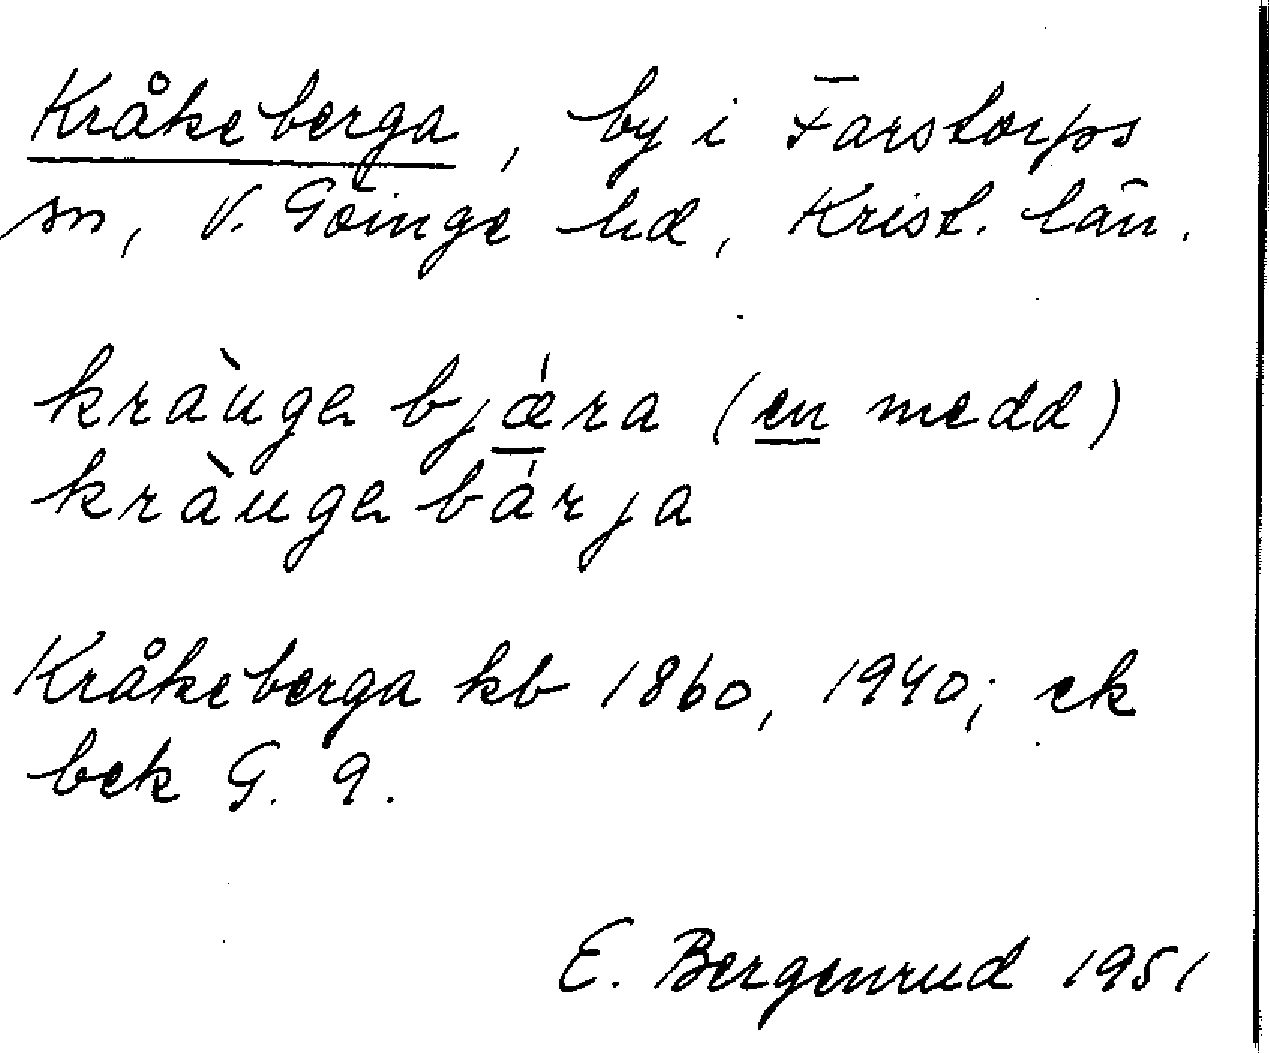 Kråkeberga, by i Farstorps
sn, V. Göinge hd, Krist. län.
kràugabjǽra (en medd)
kràugabárja
Kråkeberga kb 1860, 1940; ek
bek G. 9.
E. Bergenrud 1951